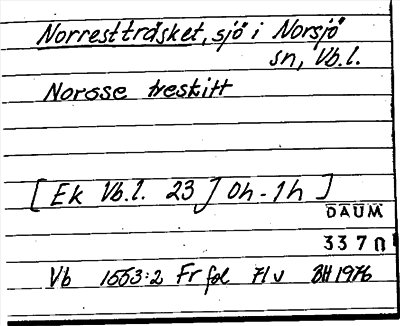 Norrestträsket, sjö i Norsjö
sn, Vb.l.
Norsse treskitt
[Ek Vb.l. 23 J 0h-1h]
DAUM
3370
Vb 1553:2 Fr fol 71 v BH 1976